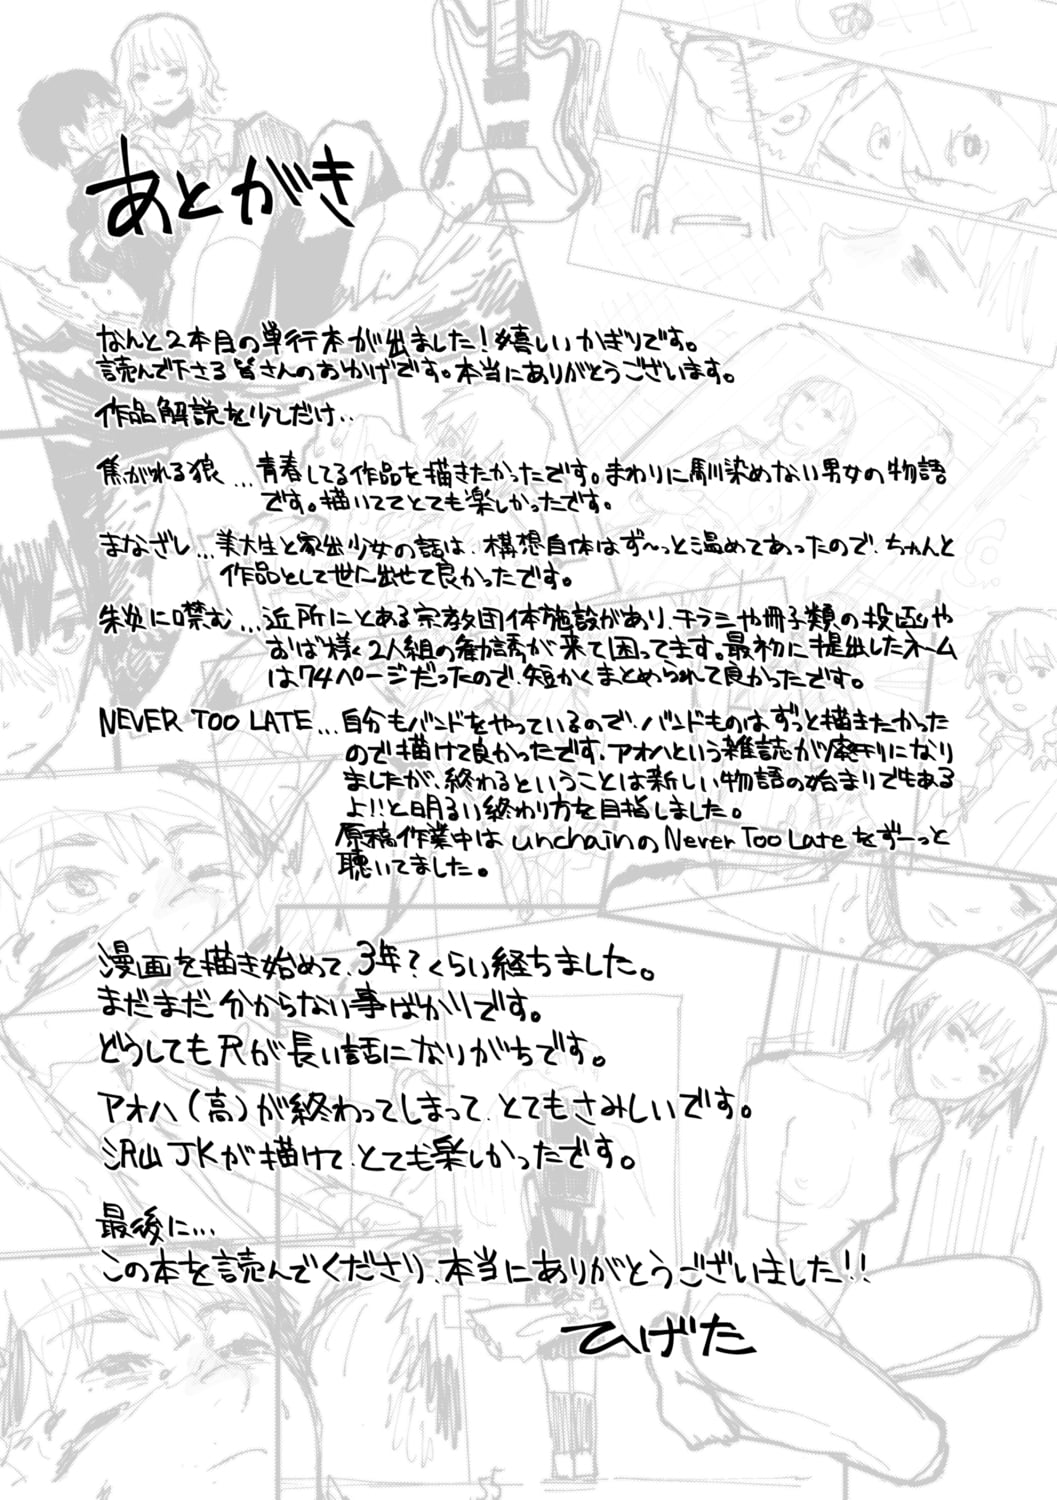 あとがき
なんと2本目の単行本が出ました！嬉しいかぎりです。
読んで下さる皆さんのおかげです。本当にありがとうございます。
作品解説を少しだけ‥
焦がれる狼…青春してる作品を描きたかったです。まわりに馴染めない男女の物語
です。描いててとても楽しかったです。
まなざし…美大生と家出少女の話は、構想自体はず〜っと温めてあったので、ちゃんと
作品として世に出せて良かったです。
朱炎に噤む…近所にとある宗教団体施設があり、チラシや冊子類の投函や
おば様2人組の勧誘が来て困ってます。最初に提出したネーム
は74ページだったので、短かくまとめられて良かったです。
NEVER TOO LATE…自分もバンドをやっているので、バンドものはずっと描きたかった
ので描けて良かったです、アオハという雑誌が廃刊になり
ましたが、終わるということは新しい物語の始まりでもある
よ!!と明るい終わり方を目指しました。
原稿作業中はunchainのNever Too Lateをずーっと
聴いてました。
漫画を描き始めて、3年？くらい経ちました。
まだまだ分からない事ばかりです。
どうしても尺が長い話になりがちです。
アオハ（高）が終わってしまって、とてもさみしいです。
沢山JKが描けて、とても楽しかったです。
最後に…
この本を読んでくださり、本当にありがとうございました!!
ひげた
55